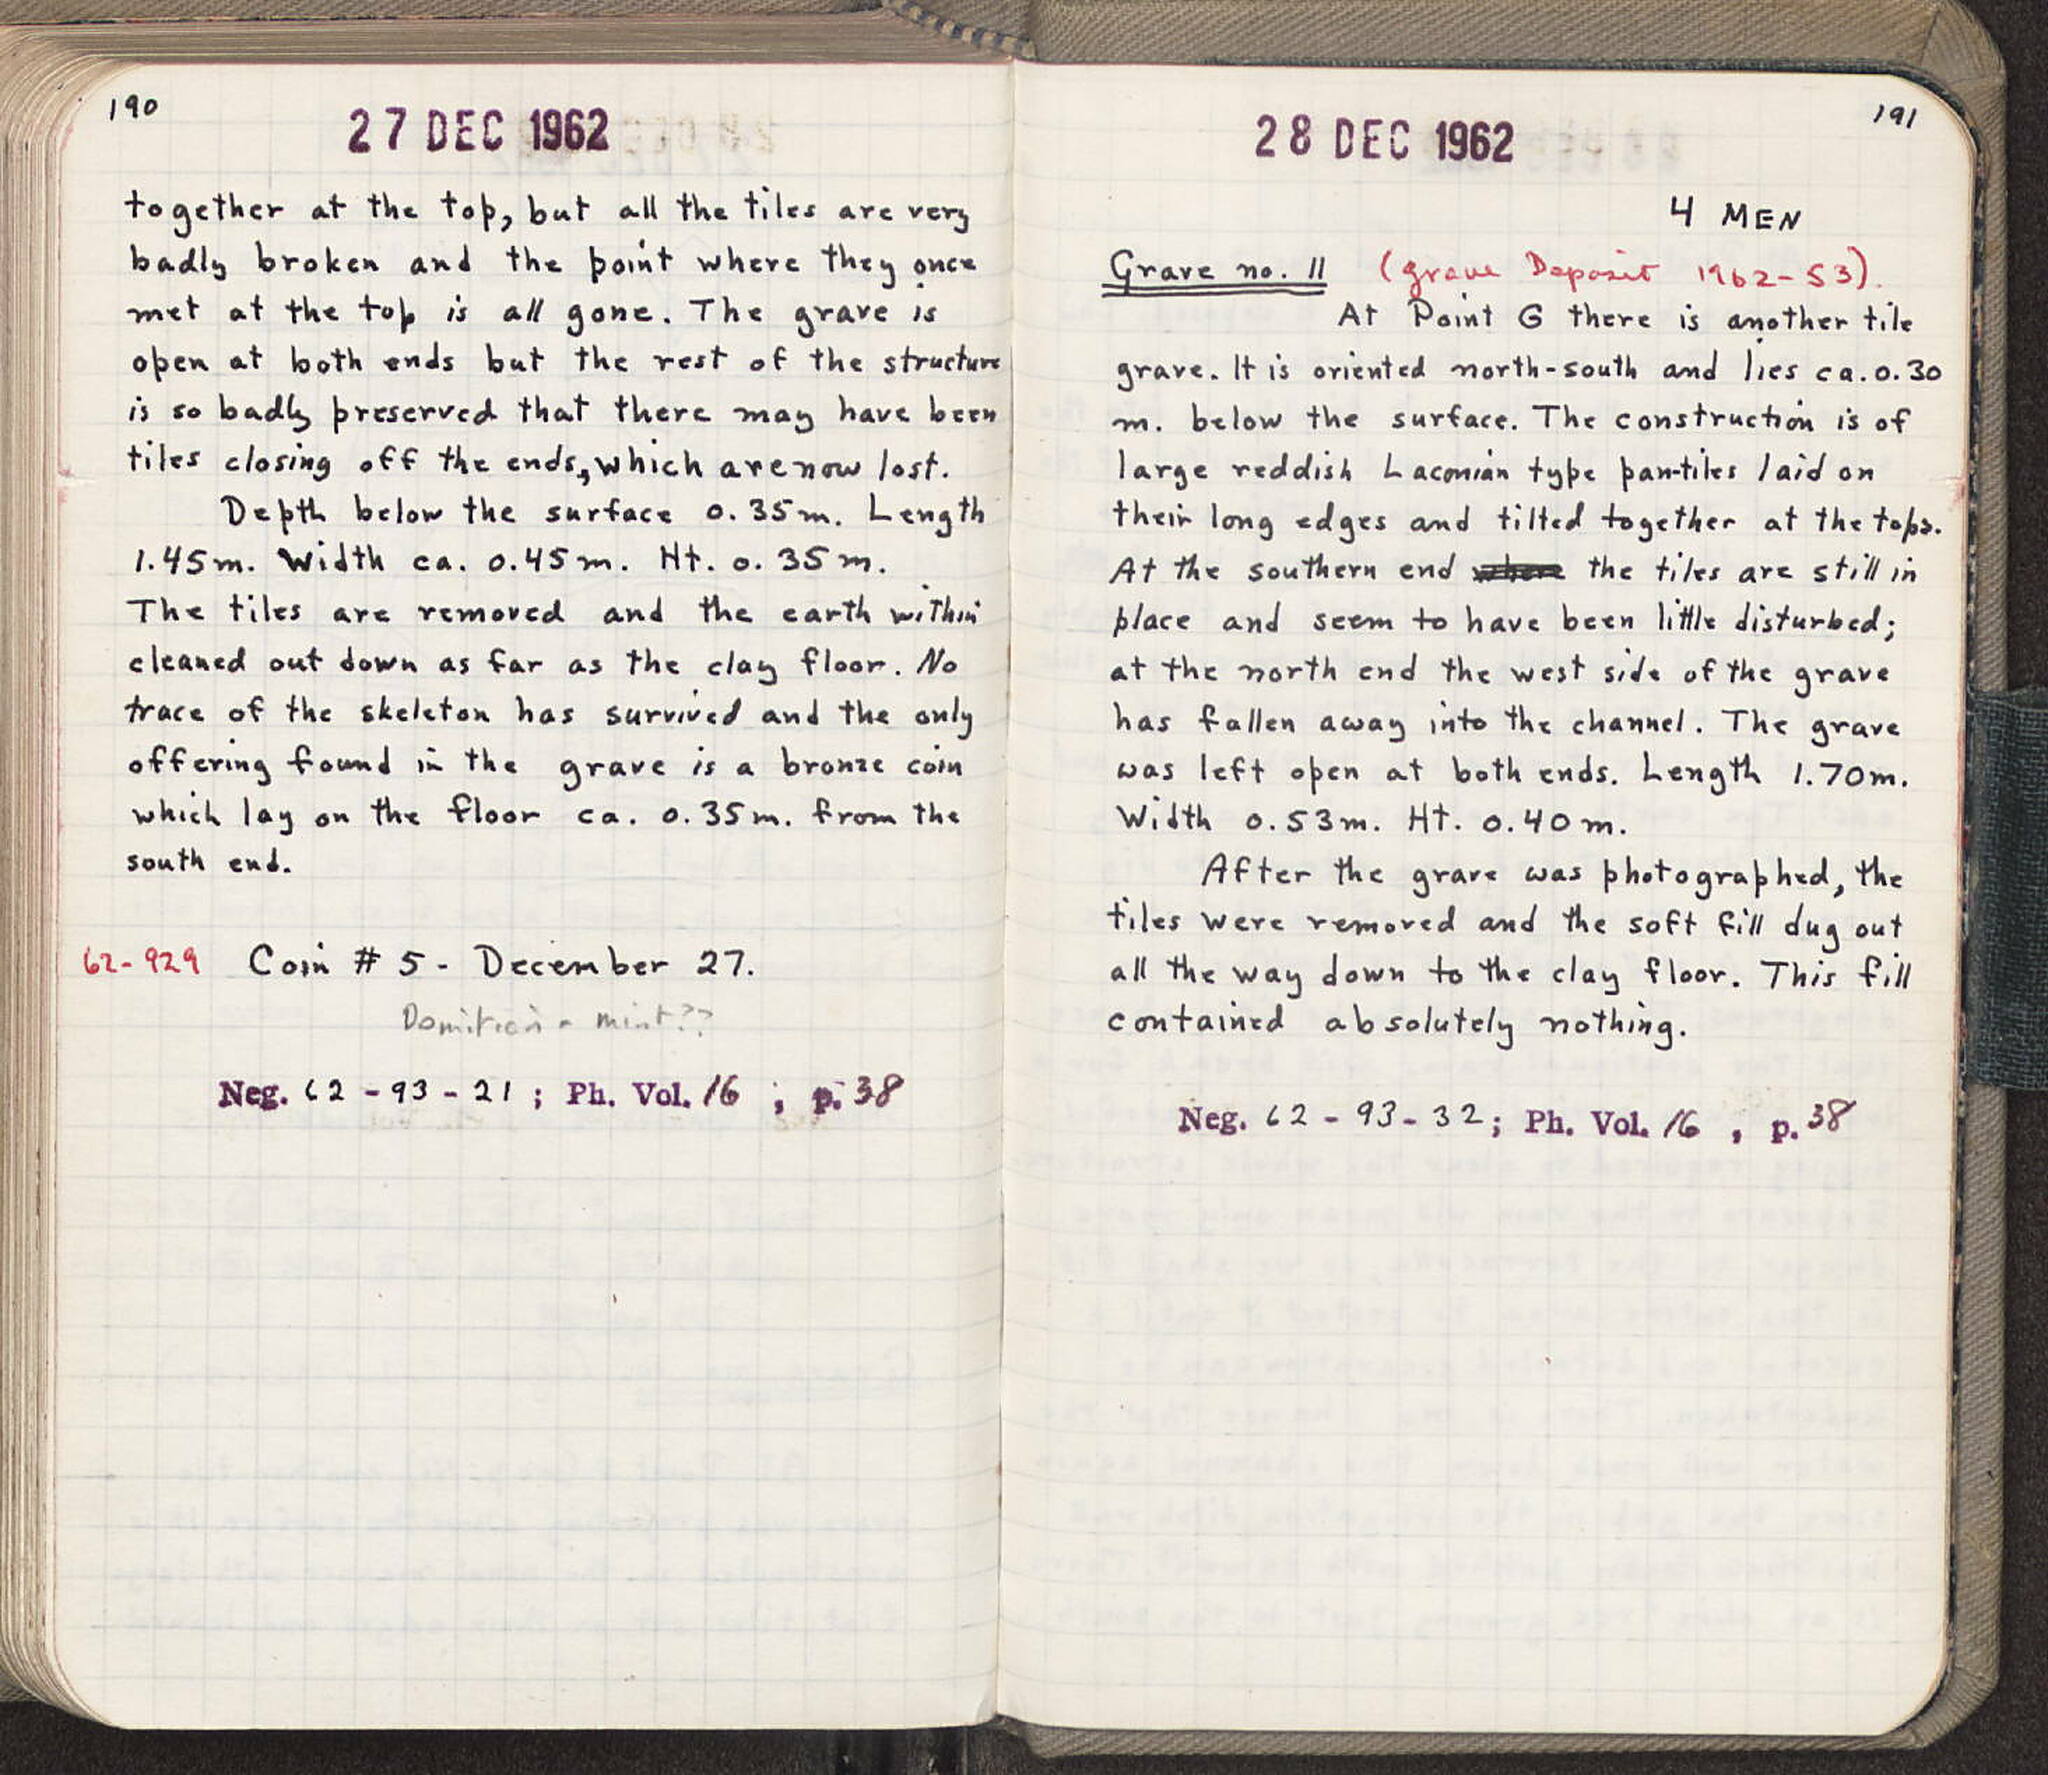 190
27 DEC 1962
together at the top, but all the tiles are very
badly broken and the point where they once
met at the top is all gone. The grave is
open at both ends but the rest of the structure
is so badly preserved that there may have been
tiles closing off the ends, which are now lost.
Depth below the surface 0.35m. Length
1.45m. Width ca. 0.45m. Ht. 0.35m.
The tiles are removed and the earth within
cleaned out down as far as the clay floor. No
trace of the skeleton has survived and the only
offering found in the grave is a bronze coin
which lay on the floor ca. 0.35m. from the
south end.
62-929 Coin # 5 - December 27.
Domitian - mint??
Neg. 62-93-21; Ph. Vol. 16, p. 38
191
28 DEC 1962
4 MEN
Grave no. 11 (grave Deposit 1962-53).
At Point G there is another tile
grave. It is oriented north-south and lies ca. 0.30
m. below the surface. The construction is of
large reddish Laconian type pan-tiles laid on
their long edges and tilted together at the tops.
At the southern end where the tiles are still in
place and seem to have been little disturbed;
at the north end the west side of the grave
has fallen away into the channel. The grave
was left open at both ends. Length 1.70m.
Width 0.53m. Ht. 0.40m.
After the grave was photographed, the
tiles were removed and the soft fill dug out
all the way down to the clay floor. This fill
contained absolutely nothing.
Neg. 62-93-32; Ph. Vol. 16, p. 38